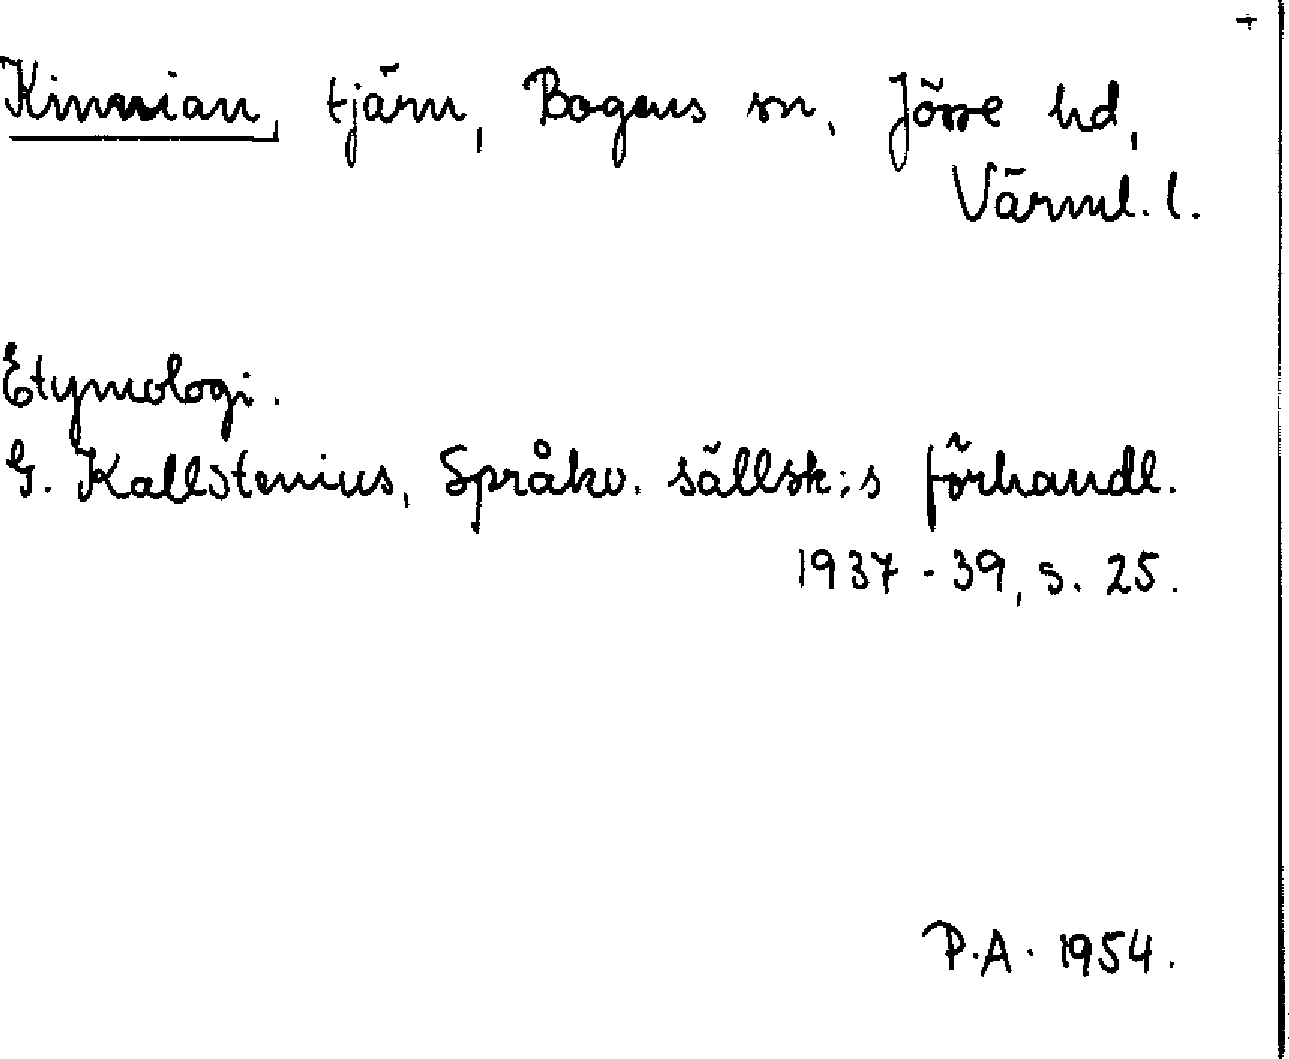 Kinnian, tjärn, Bogens sn, Jösse hd,
Värml. l.
Etymologi.
G. Kallstenius, Språkv. sällsk:s förhandl.
1937-39, s. 25.
P.A. 1954.